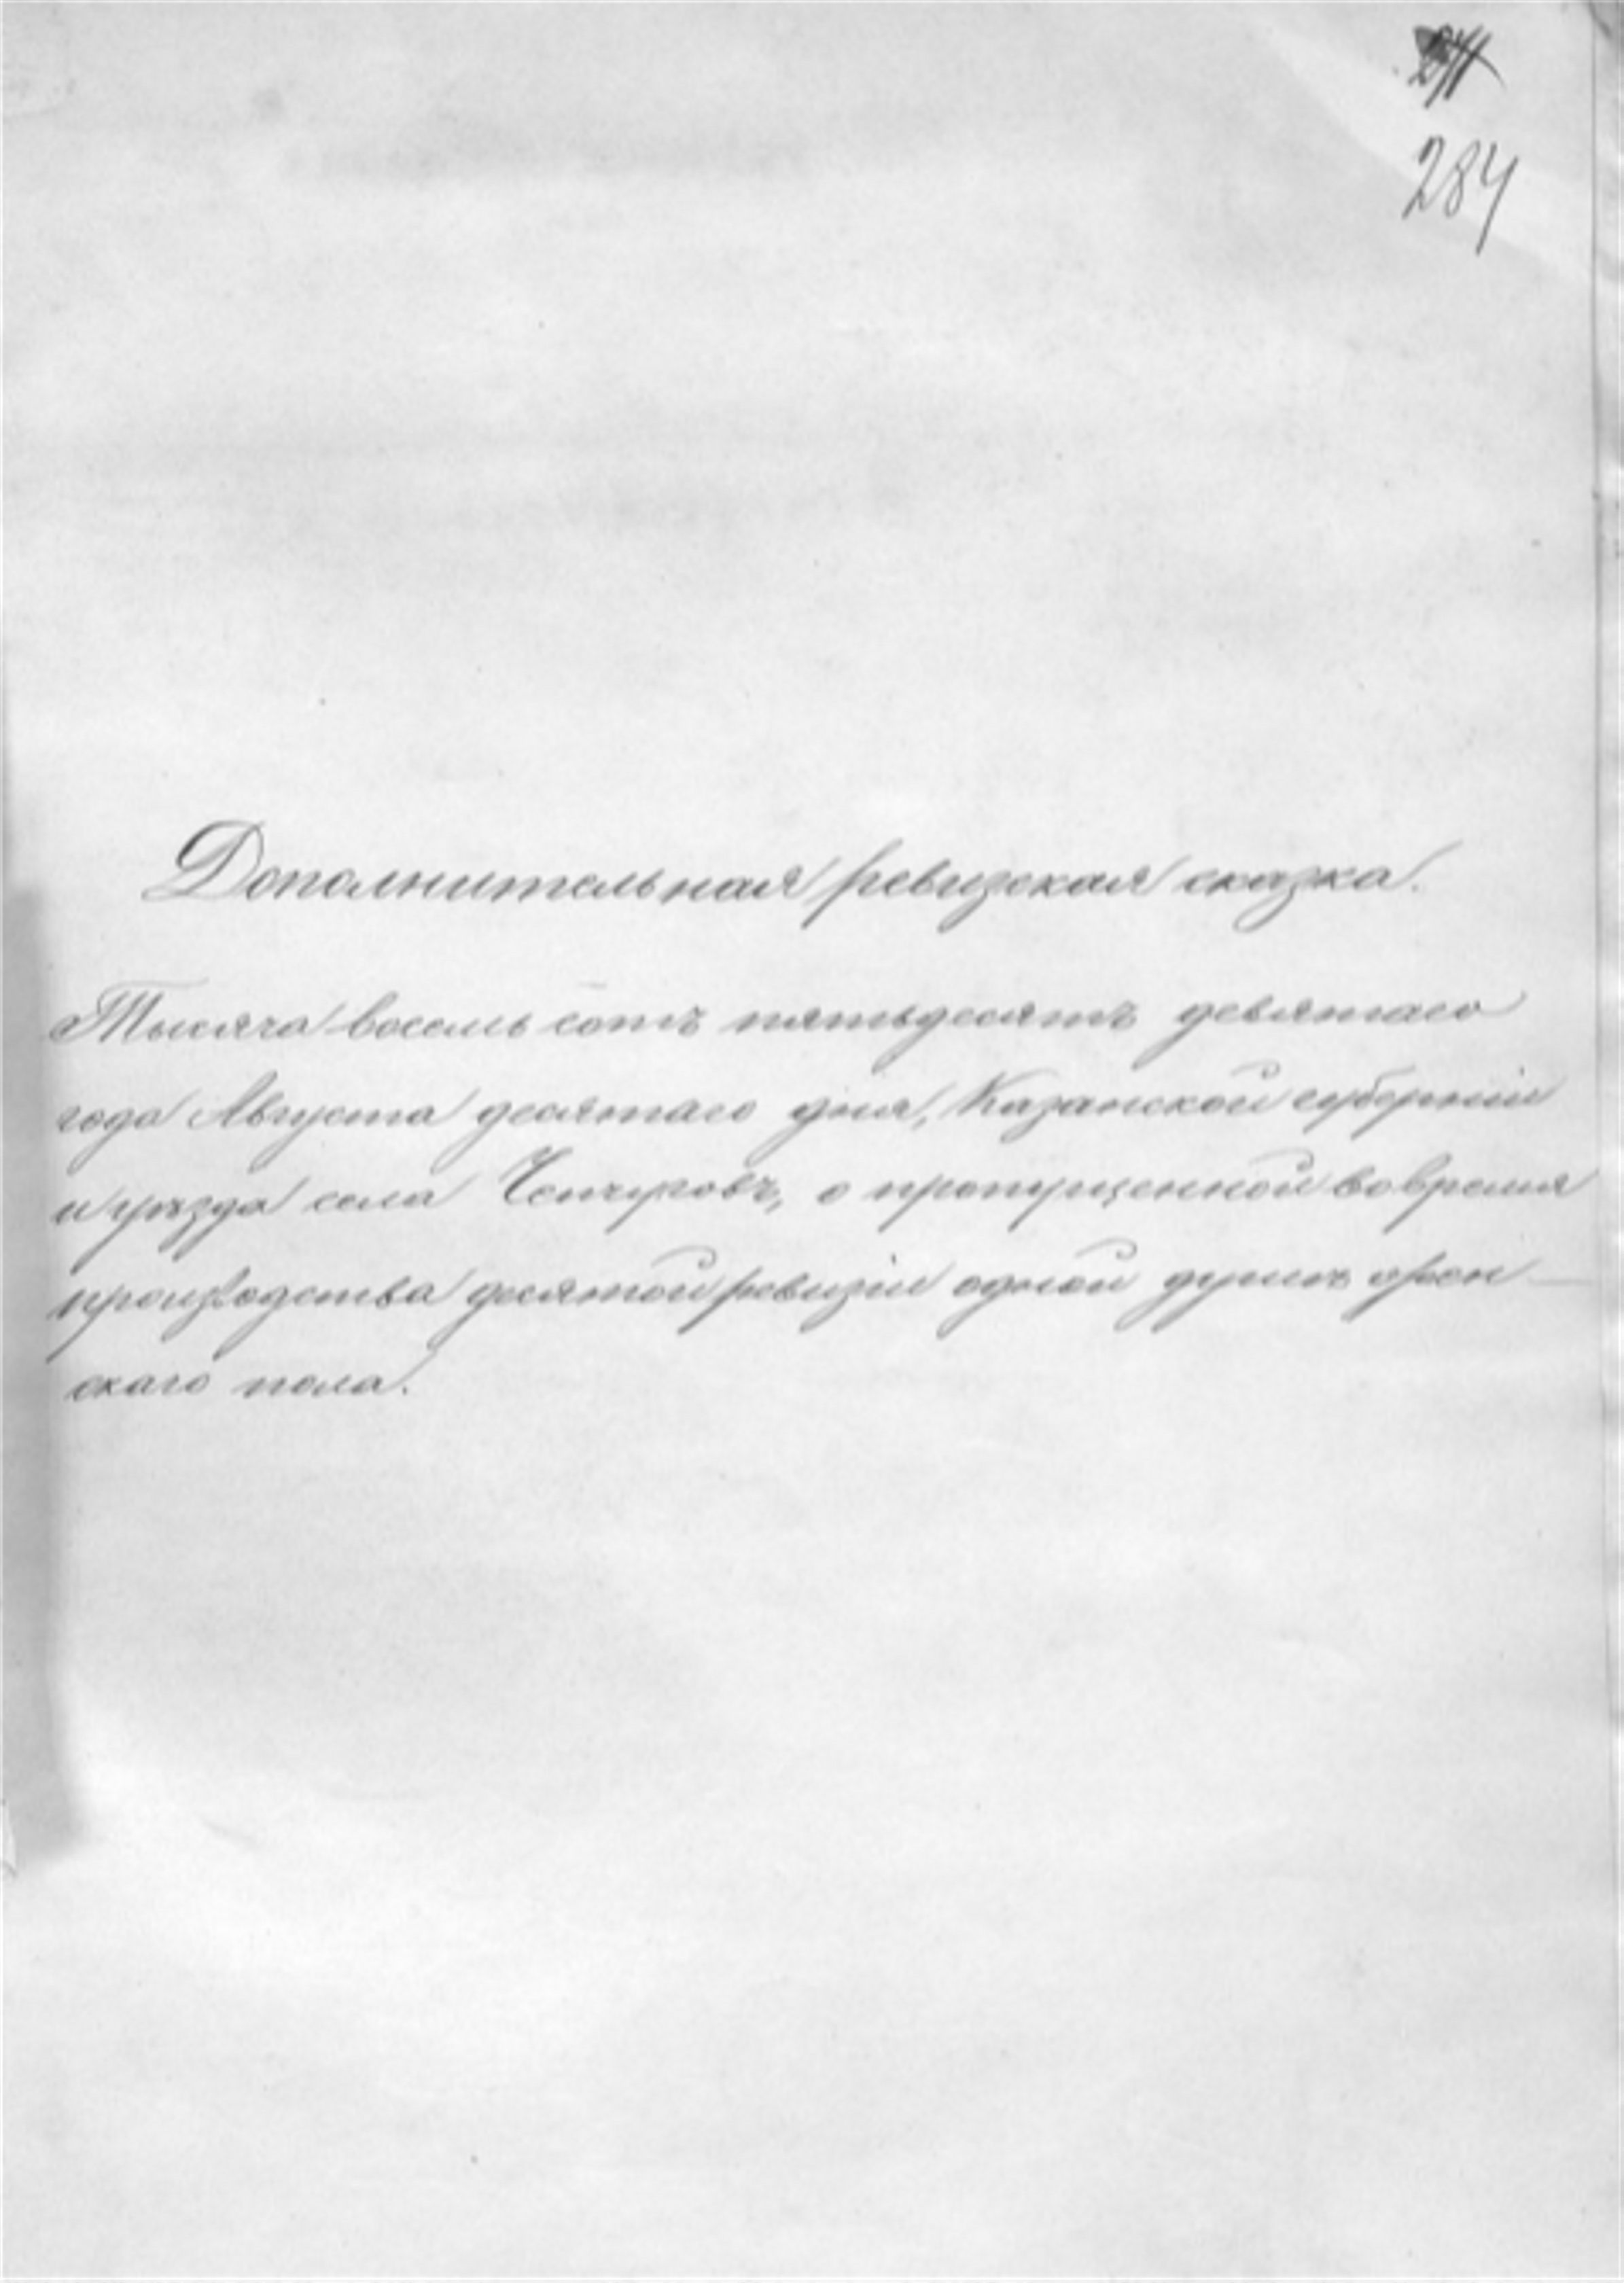 284
Дополнительная ревизская сказка.
Тысяча восемь сотъ пятьдесятъ девятаго
года Августа десятаго дня, Казанской губерніи
и уѣзда села Чепчуговъ, о пропущенной во время
производства десятой ревизіи одной души жен
скаго пола.